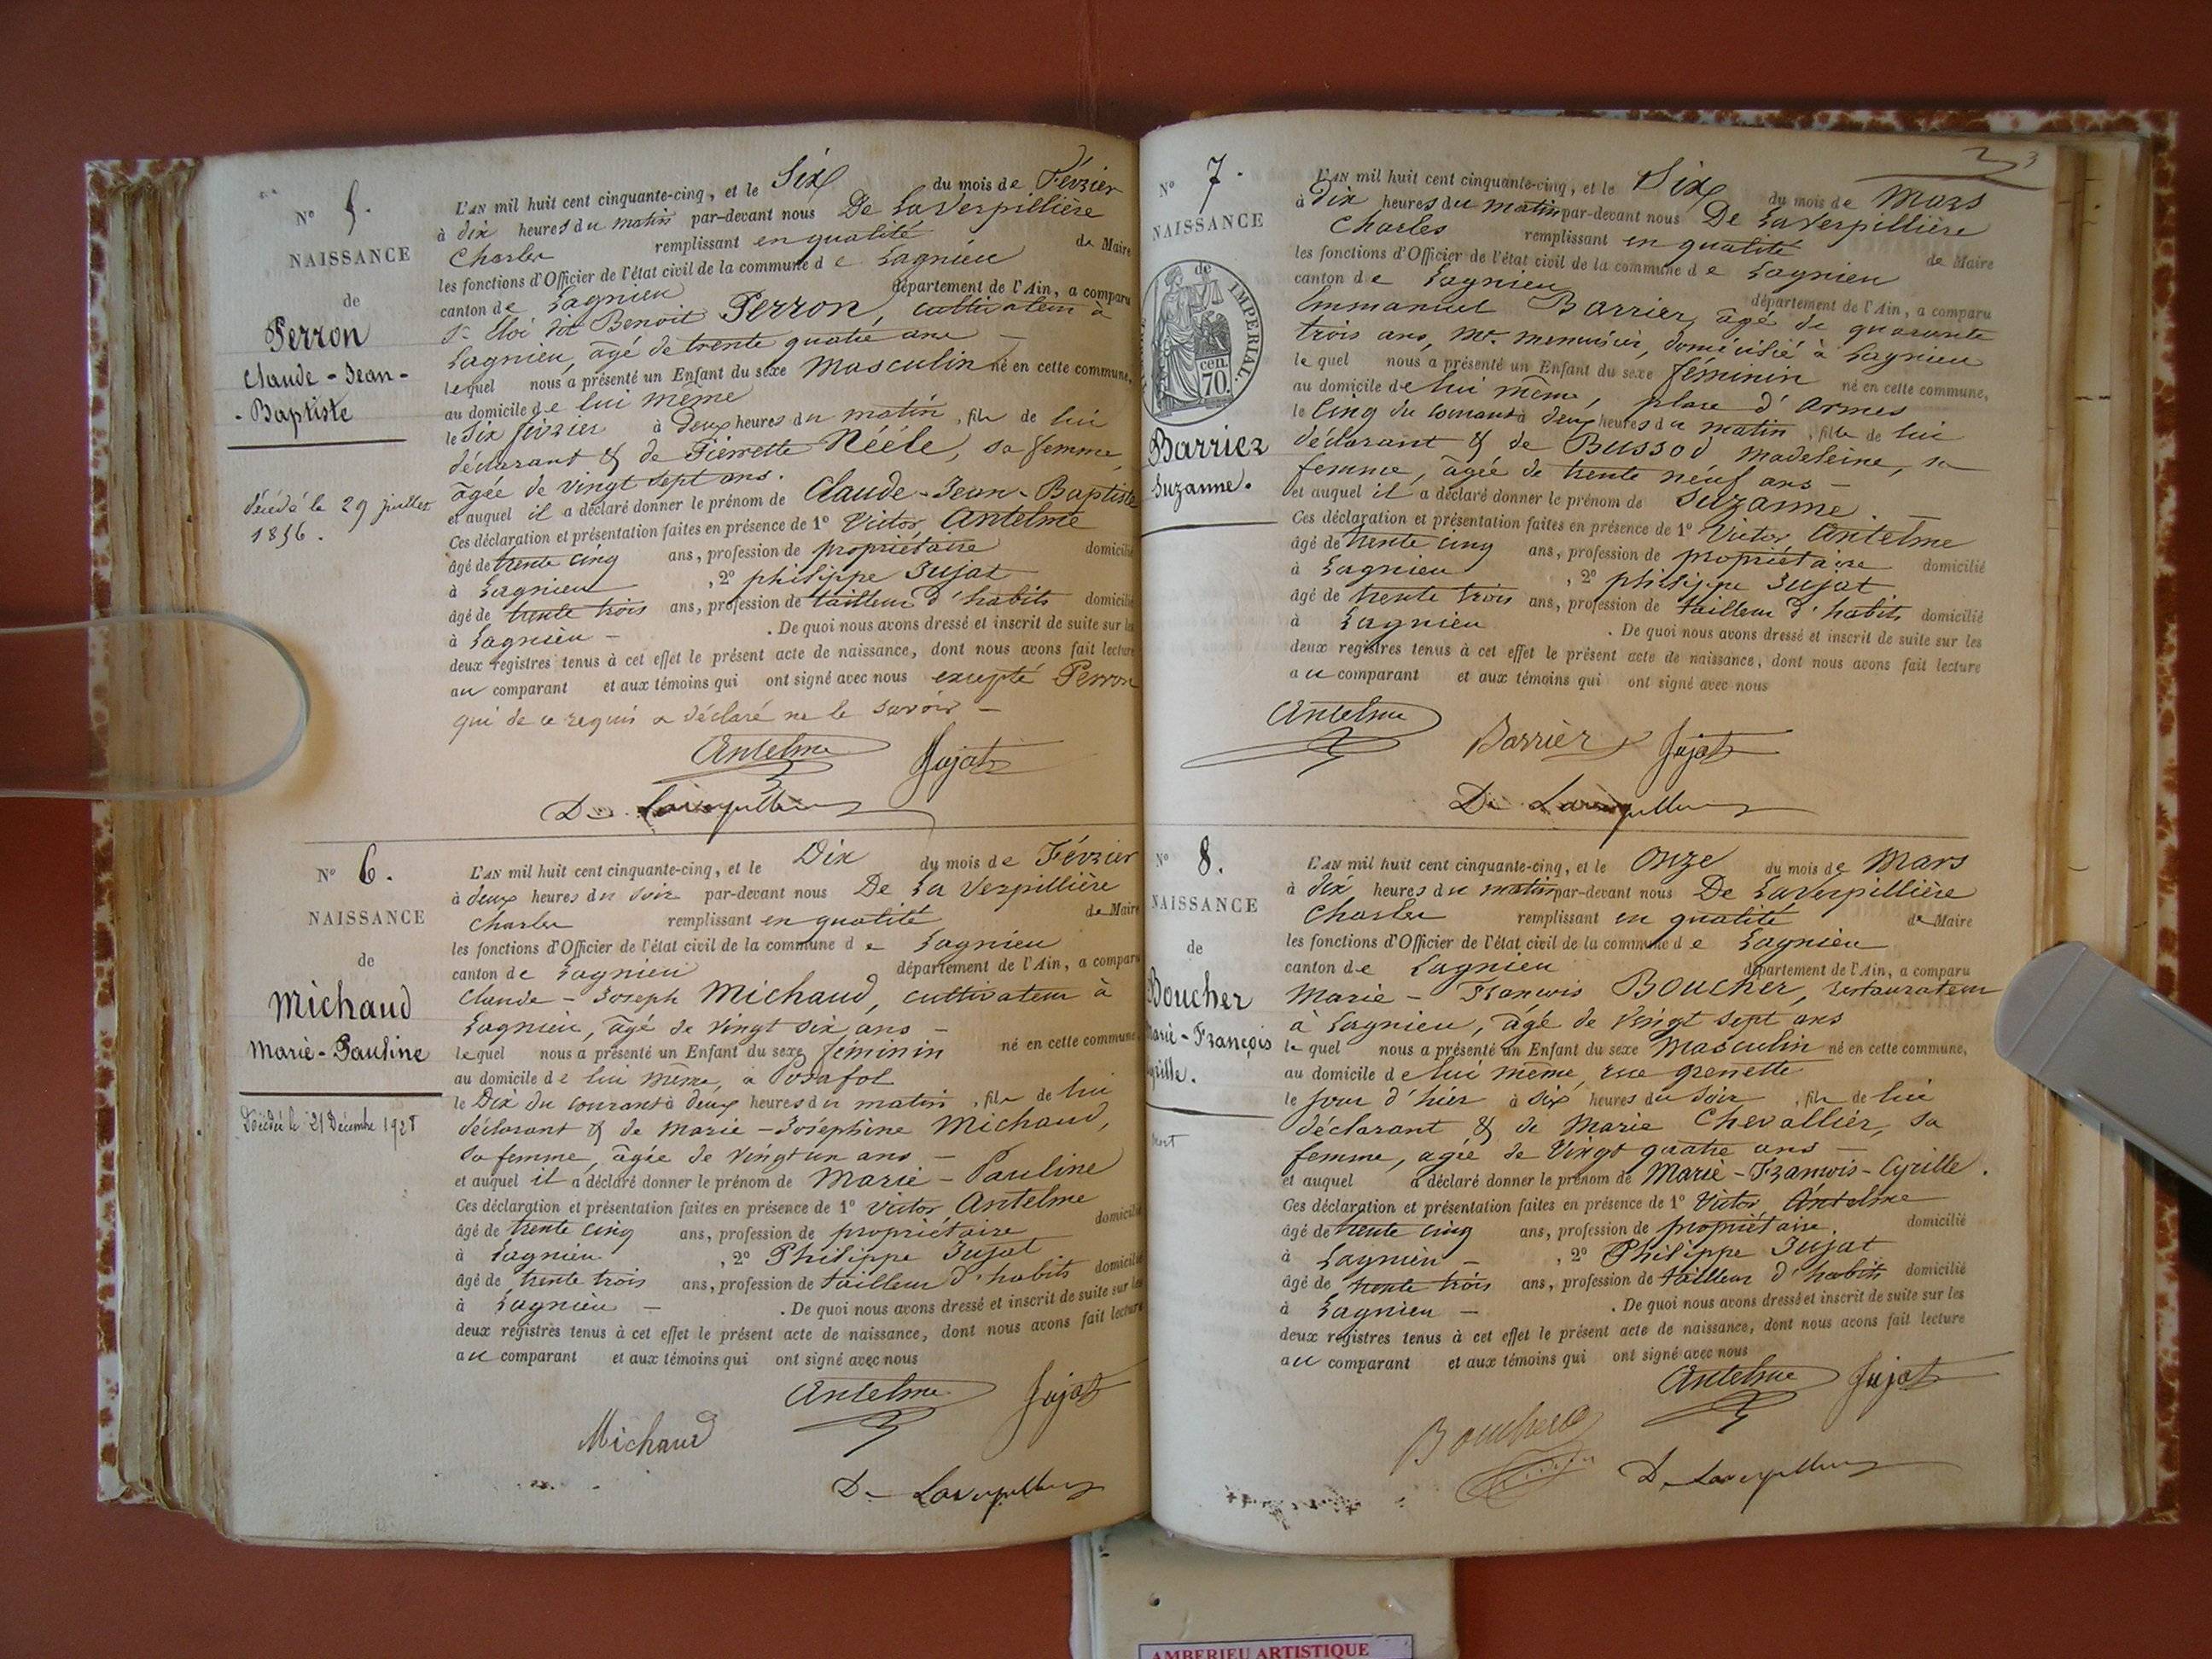 N° 5.
NAISSANCE
de
Perron
Claude-Jean-
-Baptiste
décédé le 29 juillet
1856.
L'AN mil huit cent cinquante-cinq, et le Six du mois de Février
à dix heures du matin par-devant nous De LaVerpillière
Charles remplissant en qualité de Maire
les fonctions d'Officier de l'état civil de la commune de Lagnieu
canton de Lagnieu département de l'Ain, a comparu
dit Benoit Perron, cultivateur à
Lagnieu, âgé de trente quatre ans —
lequel nous a présenté un Enfant du sexe Masculin né en cette commune,
au domicile de lui même
le Six février à Deux heures du matin, fils de lui
déclarant & de Pierrette Nééle, sa femme,
âgée de vingt sept ans.
et auquel il a déclaré donner le prénom de Claude-Jean-Baptiste
Ces déclaration et présentation faites en présence de 1° Victor Antelme
âgé de trente cinq ans, profession de propriétaire domicilié
à Lagnieu, 2° philippe Jujat
âgé de trente trois ans, profession de tailleur d'habits domicilié
à Lagnieu — . De quoi nous avons dressé et inscrit de suite sur les
deux registres tenus à cet effet le présent acte de naissance, dont nous avons fait lecture
au comparant et aux témoins qui ont signé avec nous excepté Perron
qui de ce requis a déclaré ne le savoir —
Antelme Jujat
De Laverpillière
N° 6.
NAISSANCE
de
Michaud
Marie-Pauline
Décédée le 21 Décembre 1928
L'AN mil huit cent cinquante-cinq, et le Dix du mois de Février
à deux heures du soir par-devant nous De La Verpillière
Charles remplissant en qualité de Maire
les fonctions d'Officier de l'état civil de la commune de Lagnieu
canton de Lagnieu département de l'Ain, a comparu
Claude-Joseph Michaud, cultivateur à
Lagnieu, âgé de vingt six ans —
lequel nous a présenté un Enfant du sexe féminin né en cette commune,
au domicile de lui même, à Posafol
le Dix du courant à deux heures du matin, fille de lui
déclarant & de Marie-Josephine Michaud,
sa femme, âgée de vingt un ans —
et auquel il a déclaré donner le prénom de Marie-Pauline
Ces déclaration et présentation faites en présence de 1° Victor Antelme
âgé de trente cinq ans, profession de propriétaire domicilié
à Lagnieu, 2° Philippe Jujat
âgé de trente trois ans, profession de tailleur d'habits domicilié
à Lagnieu — . De quoi nous avons dressé et inscrit de suite sur les
deux registres tenus à cet effet le présent acte de naissance, dont nous avons fait lecture
au comparant et aux témoins qui ont signé avec nous
Antelme Jujat
Michaud
De Laverpillière
3
N° 7.
NAISSANCE
de
IMPERIAL.
70. cen.
Barrier
Suzanne.
L'AN mil huit cent cinquante-cinq, et le Six du mois de Mars
à Dix heures du matin par-devant nous De LaVerpillière
Charles remplissant en qualité de Maire
les fonctions d'Officier de l'état civil de la commune de Lagnieu
canton de Lagnieu département de l'Ain, a comparu
Emmanuel Barrier, âgé de quarante
trois ans, Me. menuisier, domicilié à Lagnieu
lequel nous a présenté un Enfant du sexe féminin né en cette commune,
au domicile de lui même, place d'armes
le Cinq du courant à deux heures du matin, fille de lui
déclarant & de Bussod Madeleine, sa
femme, âgée de trente neuf ans —
et auquel il a déclaré donner le prénom de Suzanne. —
Ces déclaration et présentation faites en présence de 1° Victor Antelme
âgé de trente cinq ans, profession de propriétaire domicilié
à Lagnieu, 2° philippe Jujat
âgé de trente trois ans, profession de tailleur d'habits domicilié
à Lagnieu . De quoi nous avons dressé et inscrit de suite sur les
deux registres tenus à cet effet le présent acte de naissance, dont nous avons fait lecture
au comparant et aux témoins qui ont signé avec nous
Antelme Barrier Jujat
De Laverpillière
N° 8.
NAISSANCE
de
Boucher
Marie-François
Cyrille.
mort
L'AN mil huit cent cinquante-cinq, et le Onze du mois de Mars
à dix heures du matin par-devant nous De LaVerpillière
Charles remplissant en qualité de Maire
les fonctions d'Officier de l'état civil de la commune de Lagnieu
canton de Lagnieu département de l'Ain, a comparu
Marie-François Boucher, restaurateur
à Lagnieu, âgé de Vingt sept ans
lequel nous a présenté un Enfant du sexe Masculin né en cette commune,
au domicile de lui même, rue grenette
le jour d'hier à Six heures du Soir, fils de lui
déclarant & de Marie Chevallier, sa
femme, agée de Vingt quatre ans —
et auquel a déclaré donner le prénom de Marie-François-Cyrille.
Ces déclaration et présentation faites en présence de 1° Victor Antelme
âgé de trente cinq ans, profession de propriétaire. domicilié
à Lagnieu —, 2° Philippe Jujat
âgé de trente trois ans, profession de tailleur d'habits domicilié
à Lagnieu — . De quoi nous avons dressé et inscrit de suite sur les
deux registres tenus à cet effet le présent acte de naissance, dont nous avons fait lecture
au comparant et aux témoins qui ont signé avec nous
Antelme Jujat
Boucher
De Laverpillière
AMBERIEU ARTISTIQUE